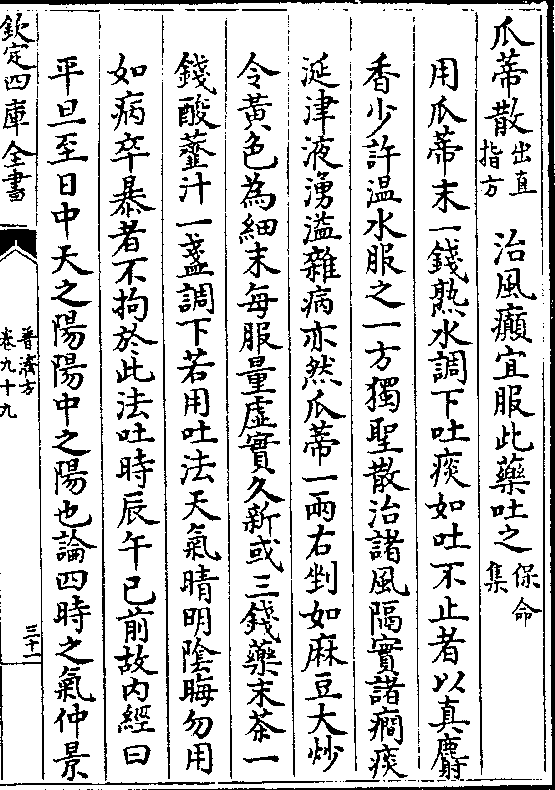 爪蔕散出直指方　治風癲宜服此藥吐之保命集
用爪蔕末一錢熟水調下吐痰如吐不止者以真麝
香少許温水服之一方獨聖散治諸風隔實諸癇痰
涎津液湧溢雜病亦然爪蔕一兩右剉如麻豆大炒
令黃色為細末每服量虛實久新或三錢藥末茶一
錢酸虀汁一盞調下若用吐法天氣晴明陰晦勿用
如病卒暴者不拘於此法吐時辰午已前故内經曰
平旦至日中天之陽陽中之陽也論四時之氣仲景
欽定四庫全書
普濟方
卷九十九
三十一